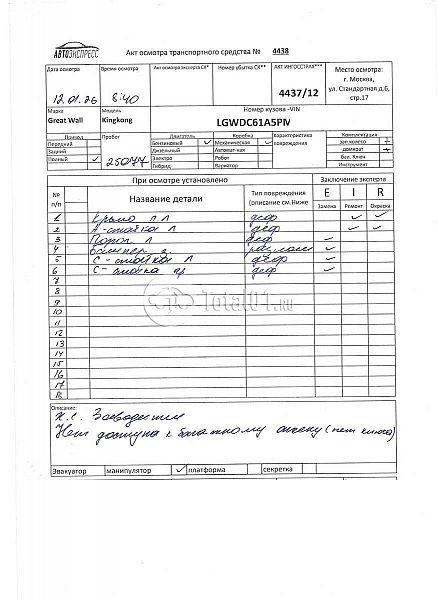 АВТОЭКСПРЕСС
Акт осмотра транспортного средства № 4438
Дата осмотра Время осмотра Акт осмотра эксперта СК* Номер убытка СК** АКТ ИНГОССТРАХ*** Место осмотра:
г. Москва,
ул. Стандартная д.6,
стр.17
12.01.26 8:40 4437/12
Марка Модель Номер кузова -VIN
Great Wall Kingkong LGWDC61A5PM
Привод Пробег Двигатель Коробка Характеристика повреждения Комплектация
Передний Бензиновый ✓ Механическая ✓ зап.колесо +
Задний Дизельный Автомат-кая домкрат +
Полный ✓ 25077 Электро Робот бал. Ключ
Гибрид Вариатор Инструмент
При осмотре установлено Заключение эксперта
№ п/п Название детали Тип повреждения (описание см.Ниже E I R
Замена Ремонт Окраска
1 Крыло п Л деф ✓ ✓
2 А-стойка Л деф ✓ ✓
3 Порог Л деф ✓
4 Бампер з. разлом ✓
5 С-стойка Л деф ✓
6 С-стойка пр деф ✓
7
8
9
10
11
12
13
14
15
16
17
18
Total01.RU
Описание:
Не Заводится
Нет доступа к багажному отсеку (нет ключа)
Эвакуатор манипулятор ✓ платформа секретка